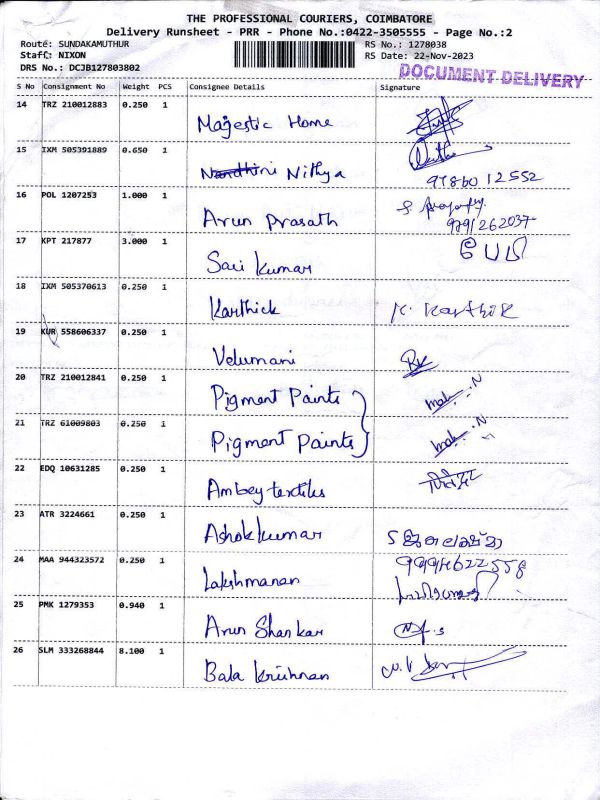 THE PROFESSIONAL COURIERS, COIMBATORE
Delivery Runsheet - PRR - Phone No.:0422-3505555 - Page No.:2
Route: SUNDAKAMUTHUR
RS No.: 1278038
Staff: NIXON
RS Date: 22-Nov-2023
DRS No.: DCJB127803802
DOCUMENT DELIVERY
S No Consignment No Weight PCS Consignee Details Signature
14 TRZ 210012883 0.250 1
Majestic Home
15 IXM 505391889 0.650 1
Nandhini Nithya
97860 12552
16 POL 1207253 1.000 1
Arun Prasath
9791262037
17 KPT 217877 3.000 1
Sasi Kumar
18 IXM 505370613 0.250 1
Karthick K. Karthik
19 KUR 558606337 0.250 1
Velumani
20 TRZ 210012841 0.250 1
Pigment Paints
21 TRZ 61009803 0.250 1
Pigment Paints
22 EDQ 10631285 0.250 1
Ambey textiles
23 ATR 3224661 0.250 1
Ashok kumar
24 MAA 944323572 0.250 1
Lakshmanan
25 PMK 1279353 0.940 1
Arun Shankar
26 SLM 333268844 8.100 1
Bala Krishnan